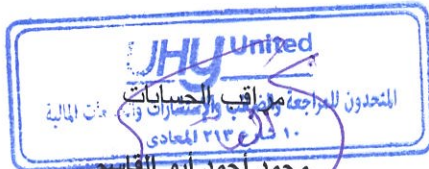 UHY United
مراقب الحسابات
المتحدون للمراجعة والضرائب والإستشارات والخدمات المالية
١٠ شارع ٢١٣ المعادى
محمد أحمد أبو القاسم